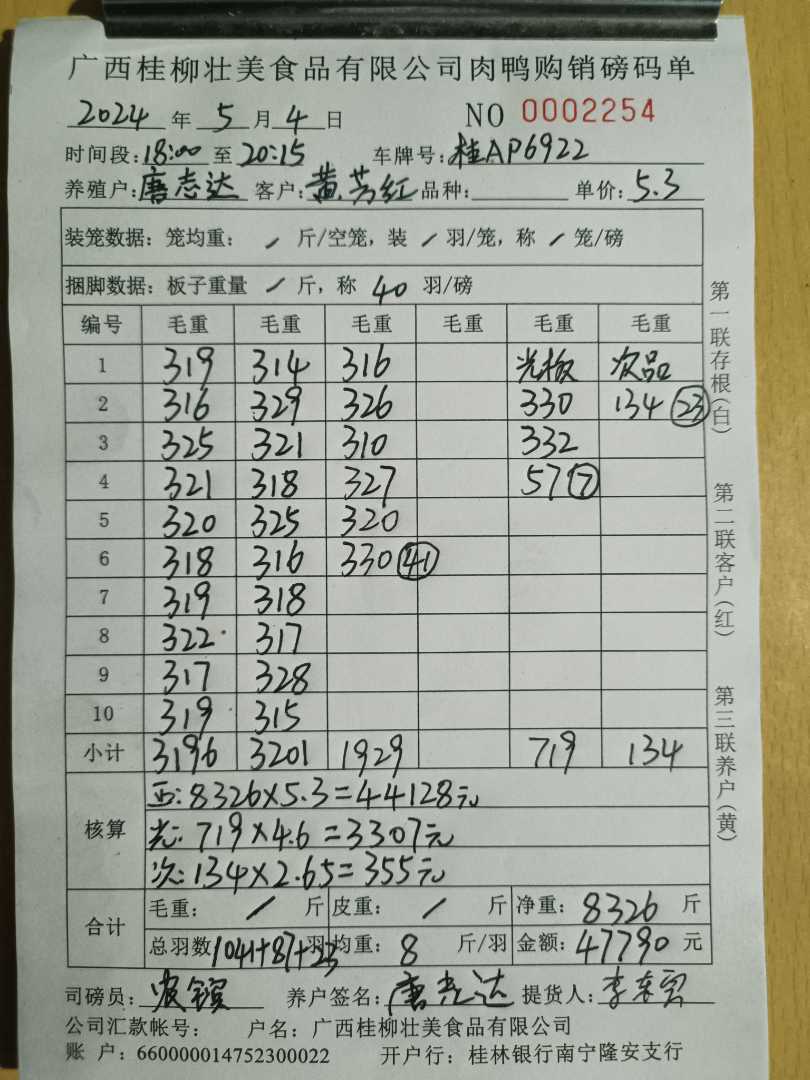 广西桂柳壮美食品有限公司肉鸭购销磅码单
2024 年 5 月 4 日 NO 0002254
时间段:18:00 至 20:15 车牌号:桂AP6922
养殖户:唐志达 客户:黄芳红 品种: 单价:5.3
装笼数据: 笼均重: / 斤/空笼, 装 / 羽/笼, 称 / 笼/磅
捆脚数据: 板子重量 / 斤, 称 40 羽/磅
编号 毛重 毛重 毛重 毛重 毛重 毛重
1 319 314 316 光板 次品
2 316 329 326 330 134 23
3 325 321 310 332
4 321 318 327 57 7
5 320 325 320
6 318 316 330 41
7 319 318
8 322 317
9 317 328
10 319 315
小计 3196 3201 1929 719 134
核算
正: 8326×5.3=44128元
光: 719×4.6=3307元
次: 134×2.65=355元
合计
毛重: / 斤 皮重: / 斤 净重: 8326 斤
总羽数 1041+87+23 羽 均重: 8 斤/羽 金额: 47790 元
司磅员: 养户签名: 唐志达 提货人: 李
公司汇款帐号: 户名: 广西桂柳壮美食品有限公司
账 户: 660000014752300022 开户行: 桂林银行南宁隆安支行
第一联存根(白)
第二联客户(红)
第三联养户(黄)